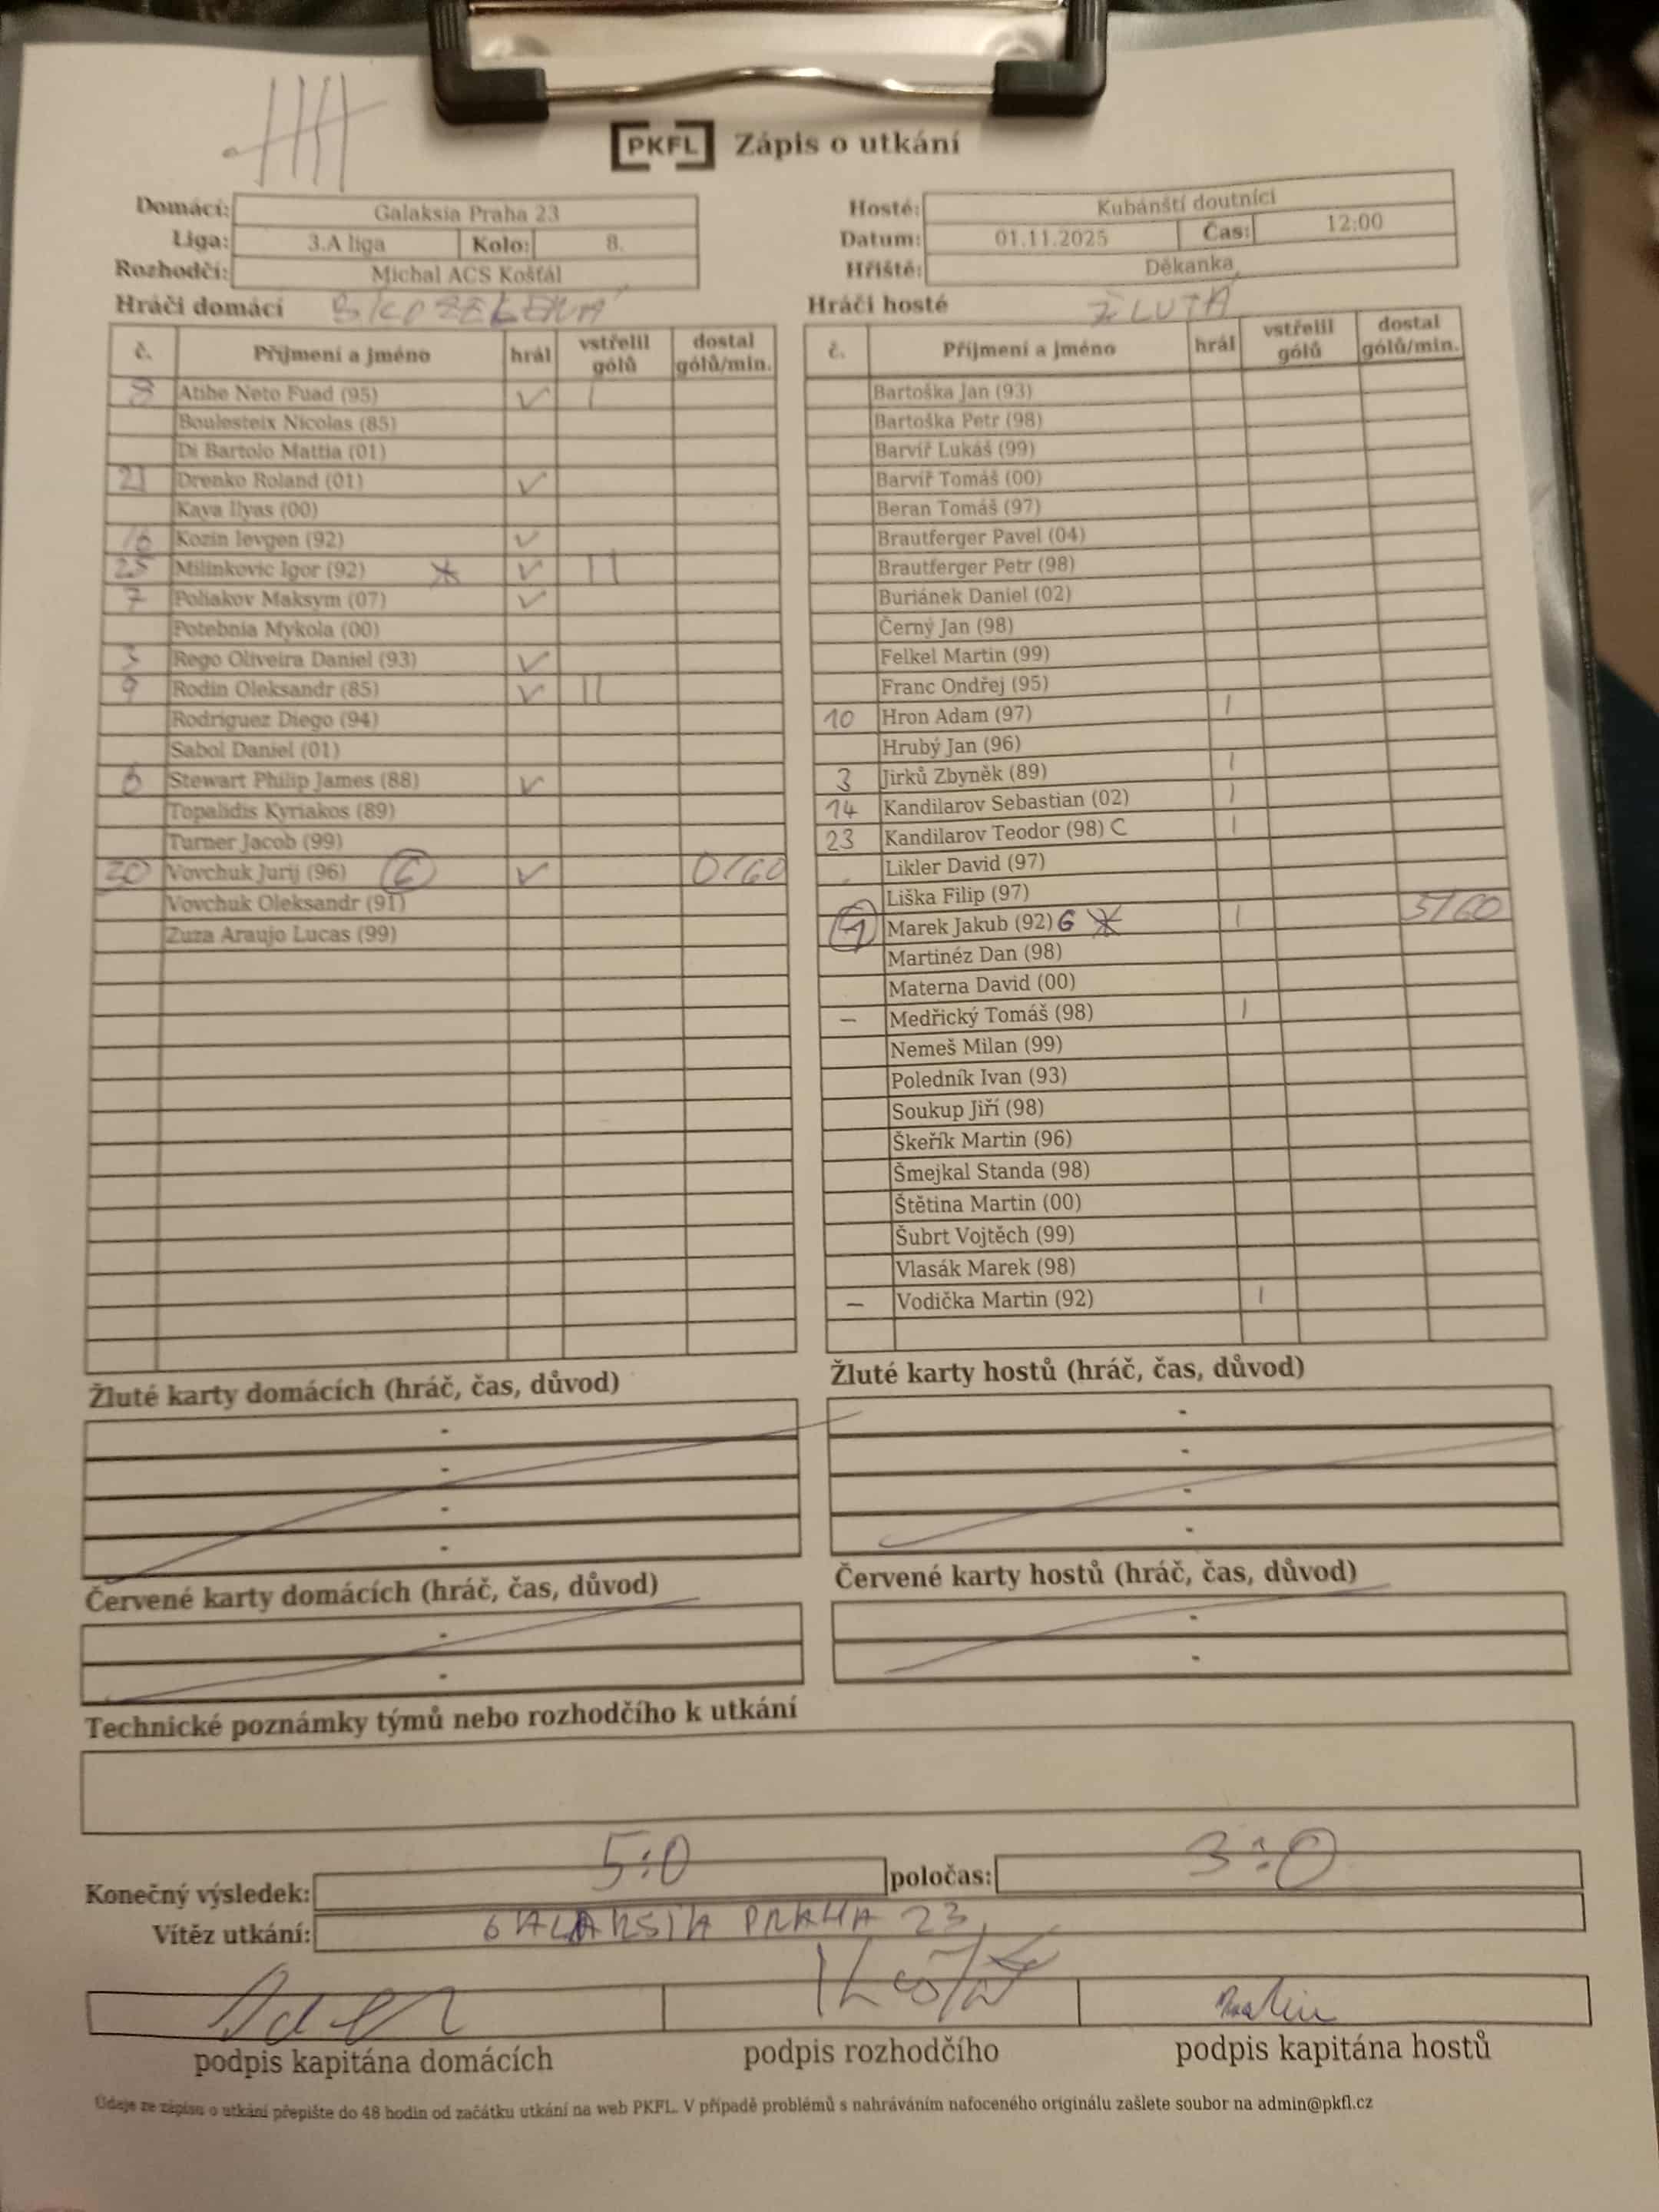 PKFL Zápis o utkání
Domácí: Galaksia Praha 23
Liga: 3.A liga Kolo: 8.
Rozhodčí: Michal ACS Košťál
Hosté: Kubánští doutníci
Datum: 01.11.2025 Čas: 12:00
Hřiště: Děkanka
Hráči domácí
č. Příjmení a jméno hrál vstřelil gólů dostal gólů/min.
8 Atihe Neto Fuad (95) ✓ I
Boulesteix Nicolas (85)
Di Bartolo Mattia (01)
21 Drenko Roland (01) ✓
Kaya Ilyas (00)
16 Kozin Ievgen (92) ✓
25 Milinkovic Igor (92) * ✓ II
7 Poliakov Maksym (07) ✓
Potebnia Mykola (00)
Rego Oliveira Daniel (93) ✓
9 Rodin Oleksandr (85) ✓ II
Rodriguez Diego (94)
Sabol Daniel (01)
6 Stewart Philip James (88) ✓
Topalidis Kyriakos (89)
Turner Jacob (99)
20 Vovchuk Jurij (96) ✓ 0/60
Vovchuk Oleksandr (91)
Zuza Araujo Lucas (99)
Hráči hosté ŽLUTÁ
č. Příjmení a jméno hrál vstřelil gólů dostal gólů/min.
Bartoška Jan (93)
Bartoška Petr (98)
Barvíř Lukáš (99)
Barvíř Tomáš (00)
Beran Tomáš (97)
Brautferger Pavel (04)
Brautferger Petr (98)
Buriánek Daniel (02)
Černý Jan (98)
Felkel Martin (99)
Franc Ondřej (95)
10 Hron Adam (97) I
Hrubý Jan (96)
3 Jirků Zbyněk (89) I
14 Kandilarov Sebastian (02) I
23 Kandilarov Teodor (98) C I
Likler David (97)
Liška Filip (97)
Marek Jakub (92) G * I 5/60
Martinéz Dan (98)
Materna David (00)
– Medřický Tomáš (98) I
Nemeš Milan (99)
Poledník Ivan (93)
Soukup Jiří (98)
Škeřík Martin (96)
Šmejkal Standa (98)
Štětina Martin (00)
Šubrt Vojtěch (99)
Vlasák Marek (98)
– Vodička Martin (92) I
Žluté karty domácích (hráč, čas, důvod)
-
-
-
-
Žluté karty hostů (hráč, čas, důvod)
-
-
-
-
Červené karty domácích (hráč, čas, důvod)
-
-
Červené karty hostů (hráč, čas, důvod)
-
-
Technické poznámky týmů nebo rozhodčího k utkání
Konečný výsledek: 5:0 poločas: 3:0
Vítěz utkání: GALAKSIA PRAHA 23
podpis kapitána domácích podpis rozhodčího podpis kapitána hostů
Údaje ze zápisu o utkání přepište do 48 hodin od začátku utkání na web PKFL. V případě problémů s nahráváním nafoceného originálu zašlete soubor na admin@pkfl.cz